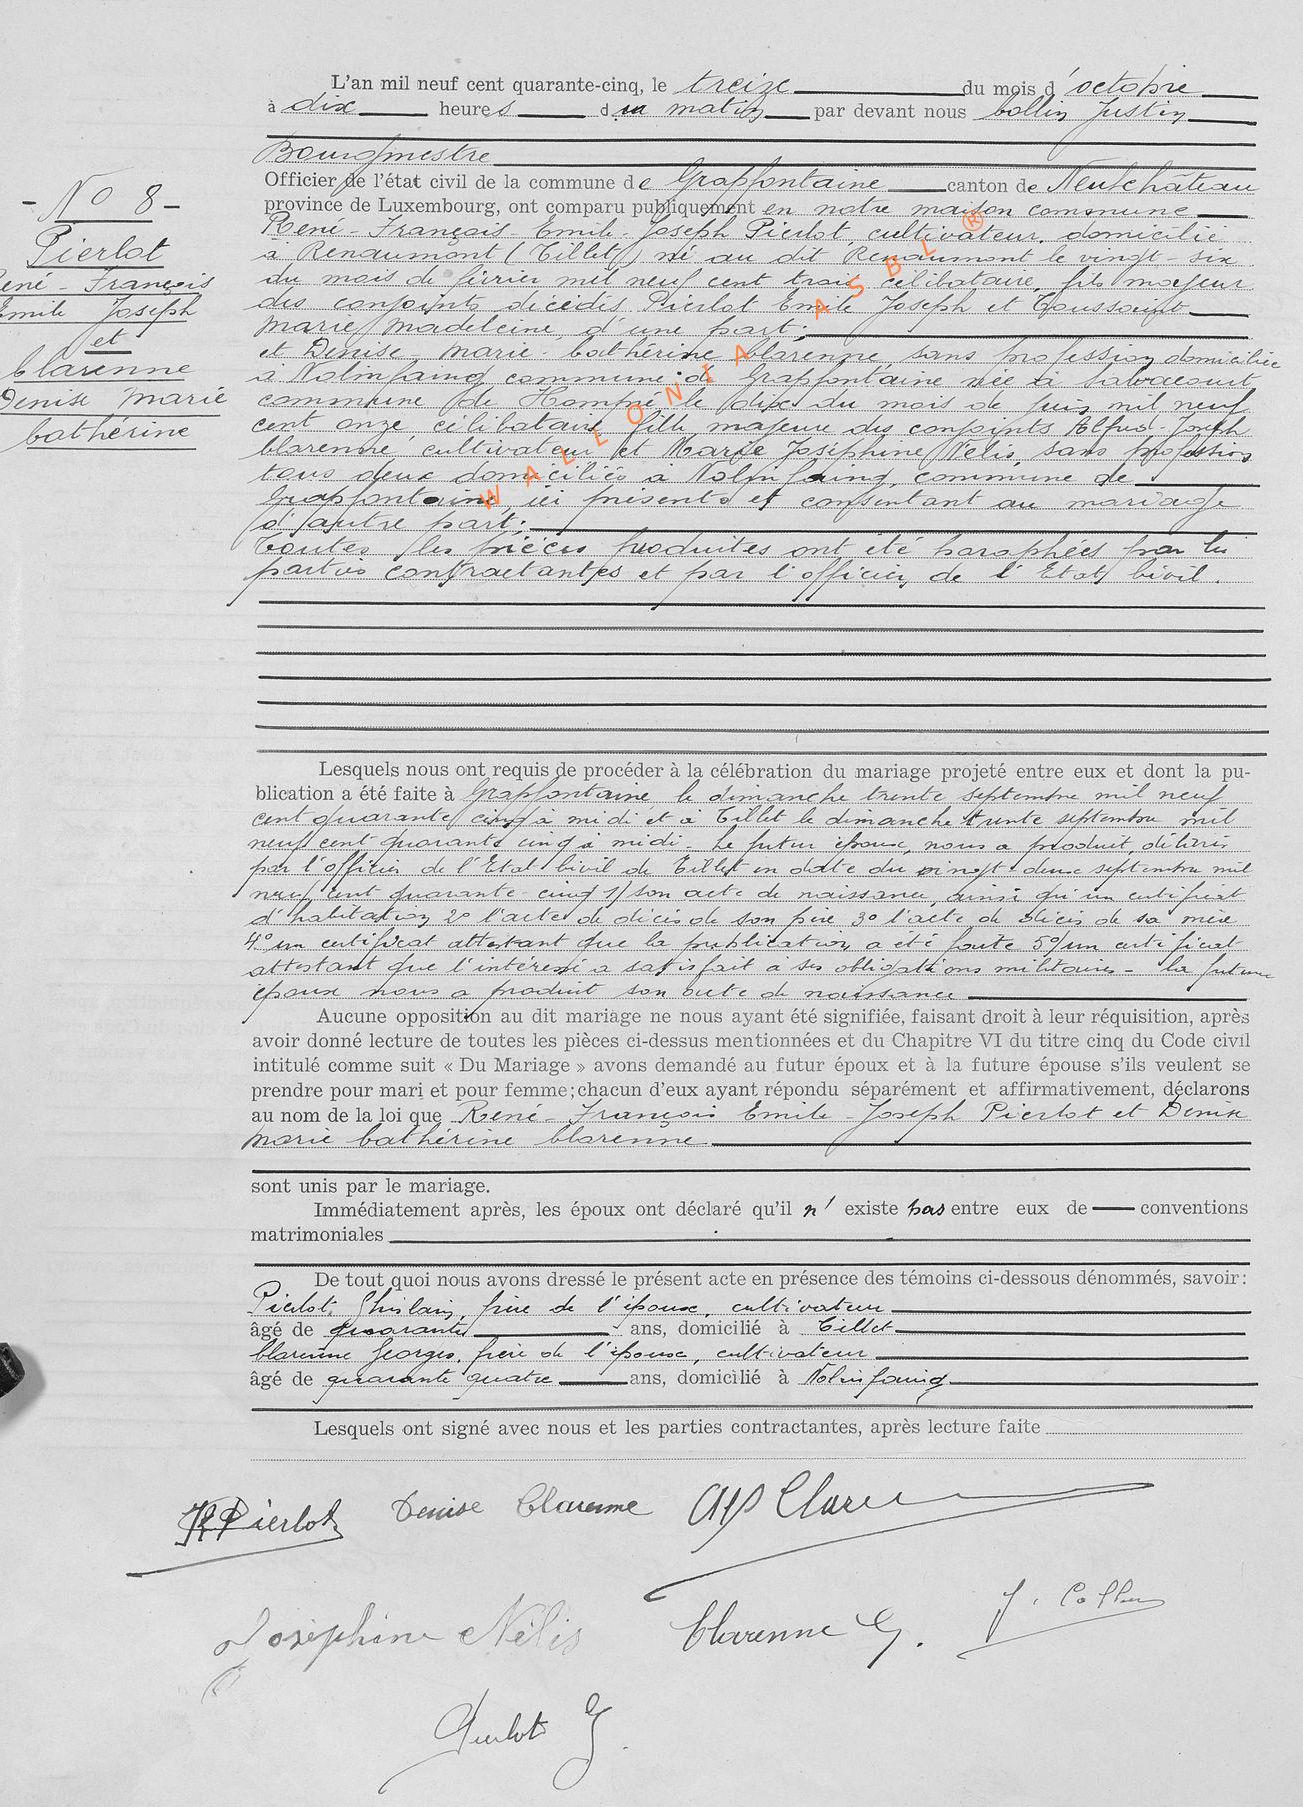 L'an mil neuf cent quarante-cinq, le treize du mois d'octobre
à dix heures du matin par devant nous Collin Justin
Bourgmestre
Officier de l'état civil de la commune de Grapfontaine canton de Neufchâteau
- No 8 -
province de Luxembourg, ont comparu publiquement en notre maison commune
René-François-Emile-Joseph Pierlot, cultivateur, domicilié
Pierlot
à Renaumont (Tillet) né au dit Renaumont le vingt-six
ené-François
du mois de février mil neuf cent trois célibataire, fils majeur
Emile Joseph
des conjoints décédés Pierlot Emile Joseph et Toussaint
et
Marie Madeleine, d'une part;
Clarenne
et Denise Marie-Cathérine Clarenne sans profession domiciliée
Denise Marie
à Nolinfaing commune de Grapfontaine née à Salvacourt
Cathérine
commune de Hompré le dix du mois de juin mil neuf
cent onze, célibataire, fille majeure des conjoints Alfred-Joseph
Clarenne, cultivateur et Marie Joséphine Nélis, sans profession
tous deux domiciliés à Nolinfaing, commune de
Grapfontaine, ici présents et consentant au mariage
d'autre part;
Toutes les pièces produites ont été paraphées par les
parties contractantes et par l'officier de l'Etat Civil.
WALLONIA ASBL ®
Lesquels nous ont requis de procéder à la célébration du mariage projeté entre eux et dont la pu-
blication a été faite à Grapfontaine le dimanche trente septembre mil neuf
cent quarante cinq à midi et à Tillet le dimanche trente septembre mil
neuf cent quarante cinq à midi - Le futur époux, nous a produit, délivrés
par l'officier de l'Etat Civil de Tillet en date du vingt-deux septembre mil
neuf cent quarante-cinq 1) son acte de naissance, ainsi qu'un certificat
d'habitation 2° l'acte de décès de son père 3° l'acte de décès de sa mère
4° un certificat attestant que la publication a été faite 5° un certificat
attestant que l'intéressé a satisfait à ses obligations militaires - La future
épouse nous a produit son acte de naissance
Aucune opposition au dit mariage ne nous ayant été signifiée, faisant droit à leur réquisition, après
avoir donné lecture de toutes les pièces ci-dessus mentionnées et du Chapitre VI du titre cinq du Code civil
intitulé comme suit « Du Mariage » avons demandé au futur époux et à la future épouse s'ils veulent se
prendre pour mari et pour femme; chacun d'eux ayant répondu séparément et affirmativement, déclarons
au nom de la loi que René-François Emile-Joseph Pierlot et Denise
Marie Cathérine Clarenne
sont unis par le mariage.
Immédiatement après, les époux ont déclaré qu'il n' existe pas entre eux de conventions
matrimoniales
De tout quoi nous avons dressé le présent acte en présence des témoins ci-dessous dénommés, savoir:
Pierlot Ghislain, frère de l'époux, cultivateur
âgé de quarante ans, domicilié à Tillet
Clarenne Georges, frère de l'épouse, cultivateur
âgé de quarante quatre ans, domicilié à Nolinfaing
Lesquels ont signé avec nous et les parties contractantes, après lecture faite
R Pierlot Denise Clarenne Alf Claren
Joséphine Nélis Clarenne G. J. Collin
Pierlot G.